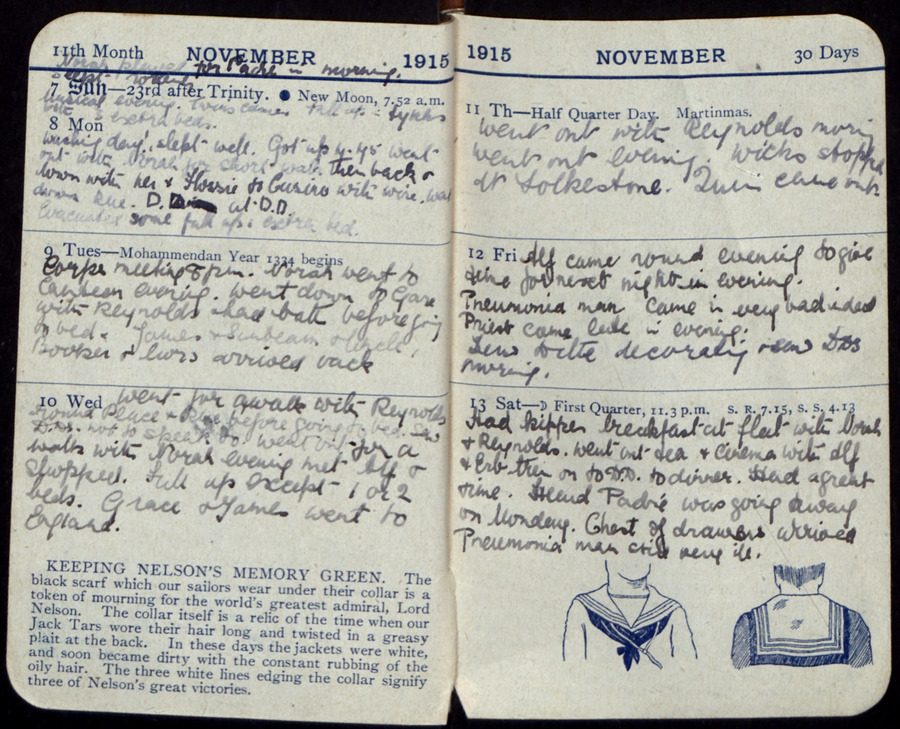 11th Month NOVEMBER 1915
Norah played for Padre in morning.
Slept
7 Sun—23rd after Trinity. ● New Moon, 7.52 a.m.
musical evening. Twins came. Full up
extra beds.
8 Mon
Washing day! slept well. Got up 4.45 went
out with Norah for short walk then back &
down with her & Flossie to Casino with wire.
down Rue. D. at D.D.
Evacuated some full up & extra bed.
9 Tues—Mohammendan Year 1334 begins
Corps meeting 8 pm. Norah went to
Canteen evening. Went down to Gare
with Reynolds & had bath before going
to bed. James & Sunbeam
Booker & arrived back
10 Wed Went for a walk with Reynolds
round Place & Rue before going to bed. Saw
D.Ds. not to speak to. Went out for a
walk with Norah evening met Alf &
stopped. Full up except 1 or 2
beds. Grace & James went to
England.
KEEPING NELSON'S MEMORY GREEN. The
black scarf which our sailors wear under their collar is a
token of mourning for the world's greatest admiral, Lord
Nelson. The collar itself is a relic of the time when our
Jack Tars wore their hair long and twisted in a greasy
plait at the back. In these days the jackets were white,
and soon became dirty with the constant rubbing of the
oily hair. The three white lines edging the collar signify
three of Nelson's great victories.
1915 NOVEMBER 30 Days
11 Th—Half Quarter Day. Martinmas.
Went out with Reynolds morning
went out evening. Wicks stopped
at Folkestone. came out.
12 Fri Alf came round evening to give
time for next night in evening.
Pneumonia man came in very bad indeed
Priest came late in evening.
decorating & saw D.Ds
morning.
13 Sat—☽ First Quarter, 11.3 p.m. S. R. 7.15, S. S. 4.13
Had kipper breakfast at flat with Norah
& Reynolds. Went out tea & cinema with Alf
& Erb then on to D.D. to dinner. Had a great
time. Heard Padré was going away
on Monday. Chest of drawers arrived
Pneumonia man still very ill.